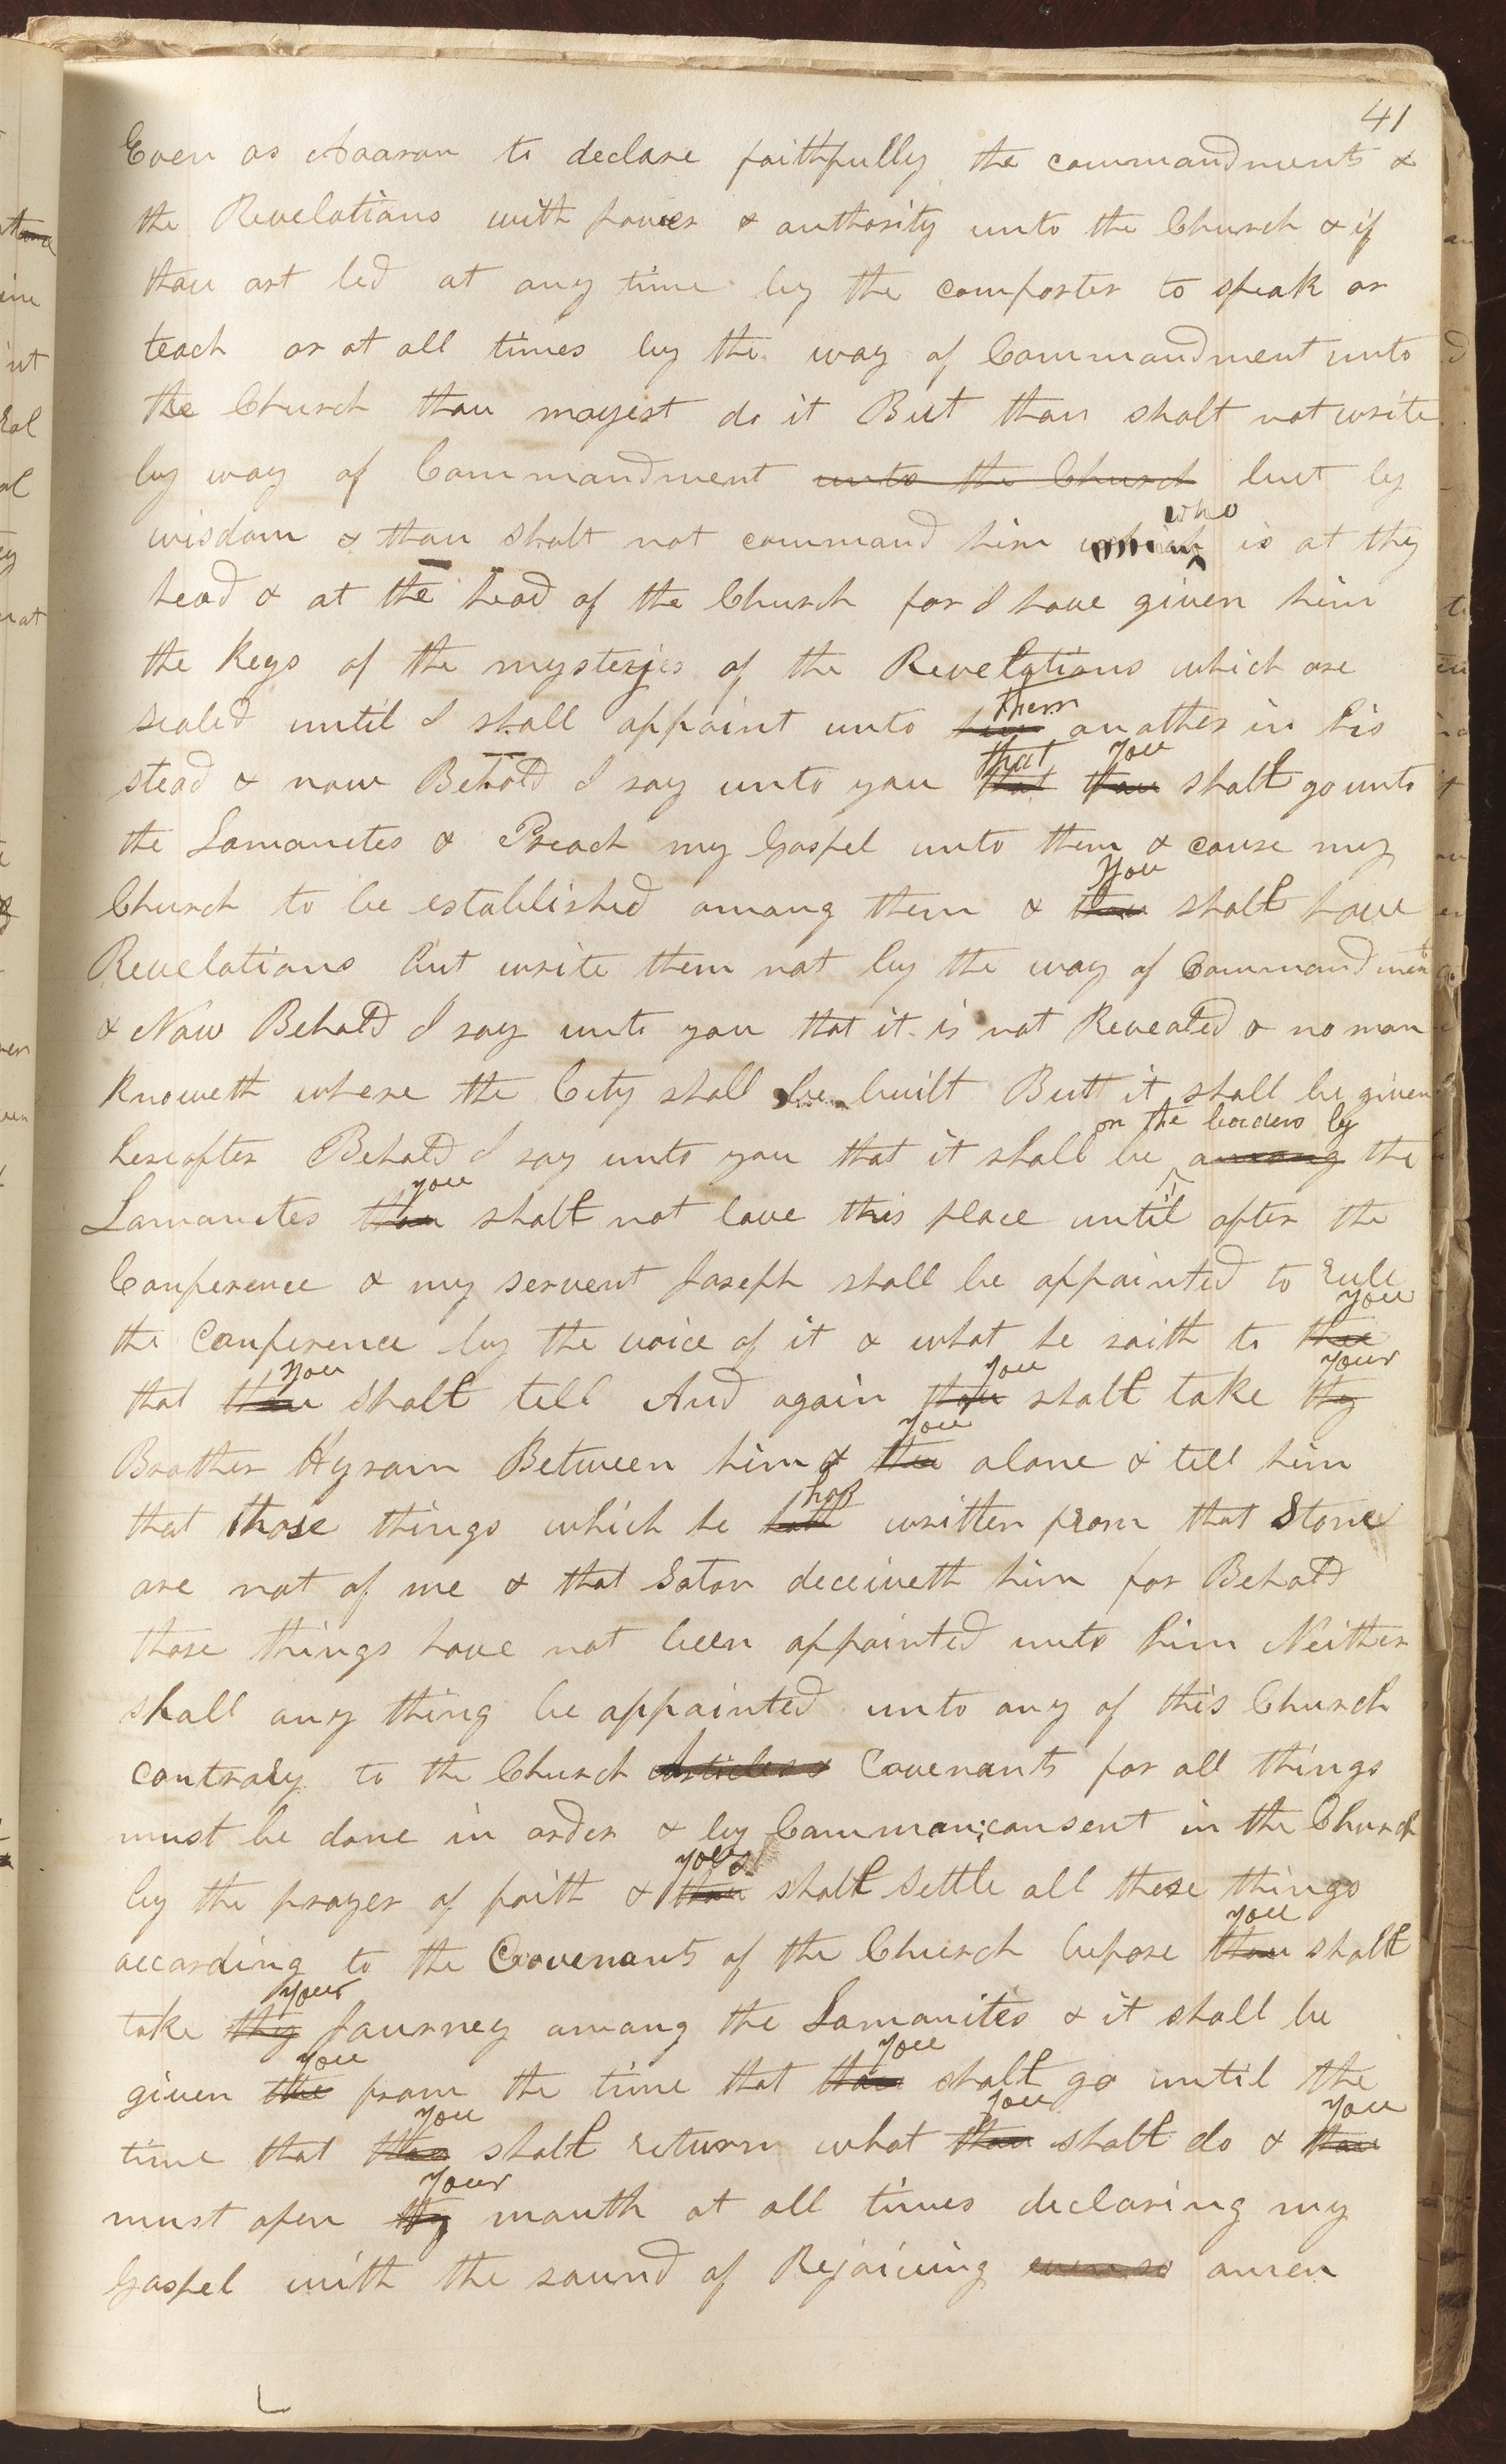 41
Even as Aaaron to declare faithfully the commandments &
the Revelations with power & authority unto the Church & if
thou art led at any time by the comforter to speak or
teach or at all times by the way of Commandment unto
the Church thou mayest do it But thou shalt not write
by way of Commandment unto the Church but by
who
wisdom & thou shalt not command him which is at thy
head & at the head of the Church for I have given him
the Keys of the mysteries of the Revelations which are
them
sealed until I shall appoint unto him another in his
that you
stead & now Behold I say unto you that thou shalt go unto
the Lamanites & Preach my Gospel unto them & cause my
you
Church to be established among them & thou shalt have
Revelations but write them not by the way of Commandment
& Now Behold I say unto you that it is not Revealed & no man
knoweth where the City shall be built But it shall be given
on the borders by
hereafter Behold I say unto you that it shall be among the
you
Lamanites thou shalt not leave this place until after the
Conference & my servent Joseph shall be appointed to rule
you
the Conference by the voice of it & what he saith to thee
you you your
that thou shalt tell And again thou shalt take thy
you
Brother Hyram Between him & thee alone & tell him
has
that those things which he hath written from that Stone
are not of me & that Satan deceiveth him for Behold
those things have not been appointed unto him Neither
shall any thing be appointed unto any of this Church
contrary to the Church Articles & Covenants for all things
must be done in order & by Common consent in the Church
you
by the prayer of faith & thou shalt settle all these things
you
according to the Covenants of the Church before thou shalt
your
take thy Journey among the Lamanites & it shall be
you you
given thee from the time that thou shalt go until the
you you you
time that thou shalt return what thou shalt do & thou
your
must open thy mouth at all times declaring my
Gospel with the sound of Rejoicing even so amen